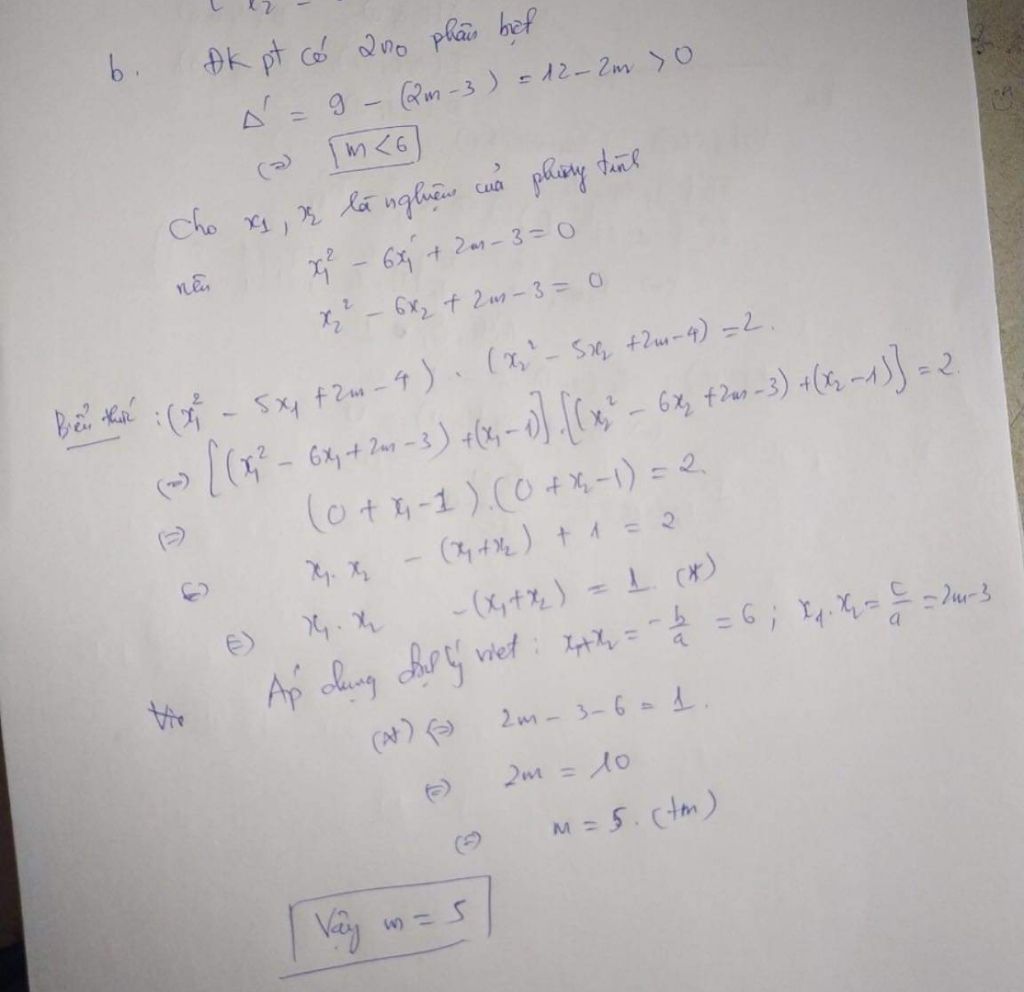 b. ĐK pt có 2no phân biệt
Δ' = 9 - (2m-3) = 12-2m > 0
(=) m<6
Cho x₁, x₂ là nghiệm của phương tình
nên x₁² - 6x₁ + 2m-3=0
x₂² - 6x₂ + 2m-3= 0
Biểu thức : (x₁² - 5x₁ +2m-4) . (x₂² - 5x₂ +2m-4) =2.
(=) [(x₁² - 6x₁+2m-3) +(x₁-1)].[(x₂² - 6x₂ +2m-3) +(x₂-1)] =2.
(=) (0 + x₁-1).(0 + x₂-1) = 2.
(=) x₁. x₂ - (x₁+x₂) + 1 = 2
(=) x₁. x₂ -(x₁+x₂) = 1. (*)
Áp dụng định lý viet : x₁+x₂ = -b/a = 6 ; x₁.x₂= c/a =2m-3
(*) (=) 2m - 3-6 = 1.
(=) 2m = 10
(=) m = 5. (tm)
Vậy m = 5